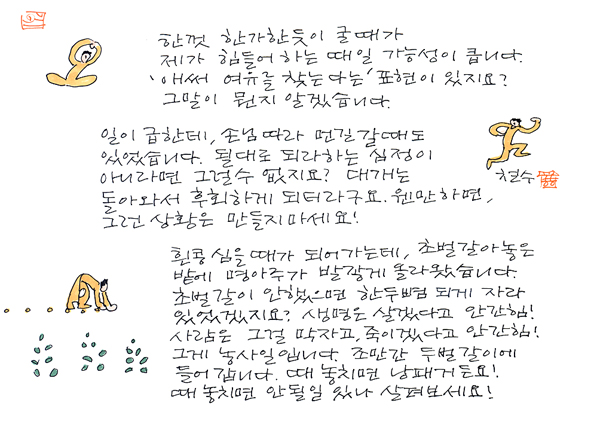 한껏 한가한듯이 굴때가
제가 힘들어하는 때일 가능성이 큽니다.
'애써 여유를 찾는다는' 표현이 있지요?
그말이 뭔지 알겠습니다.
일이 급한데, 손님따라 먼길갈때도
있었습니다. 될대로 되라하는 심정이
아니라면 그럴수 없지요? 대개는
돌아와서 후회하게 되더라구요. 웬만하면,
그런 상황은 만들지마세요!
철수
흰콩 심을때가 되어가는데, 초벌갈아놓은
밭에 명아주가 발갛게 올라왔습니다.
초벌갈이 안했으면 한두뼘 되게 자라
있었겠지요? 생명은 살겠다고 안간힘!
사람은 그걸 막자고, 죽이겠다고 안간힘!
그게 농사일입니다. 조만간 두벌갈이에
들어갑니다. 때 놓치면 낭패거든요!
때 놓치면 안될일 있나 살펴보세요!